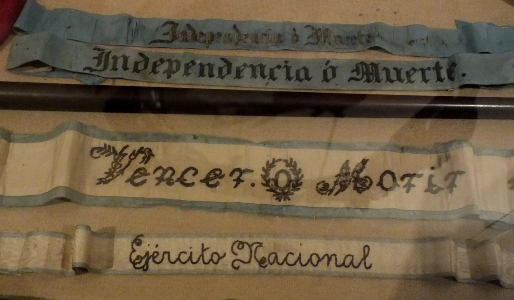 Independencia ó Muerte
Independencia ó Muerte.
Vencer. O Morir
Ejército Nacional